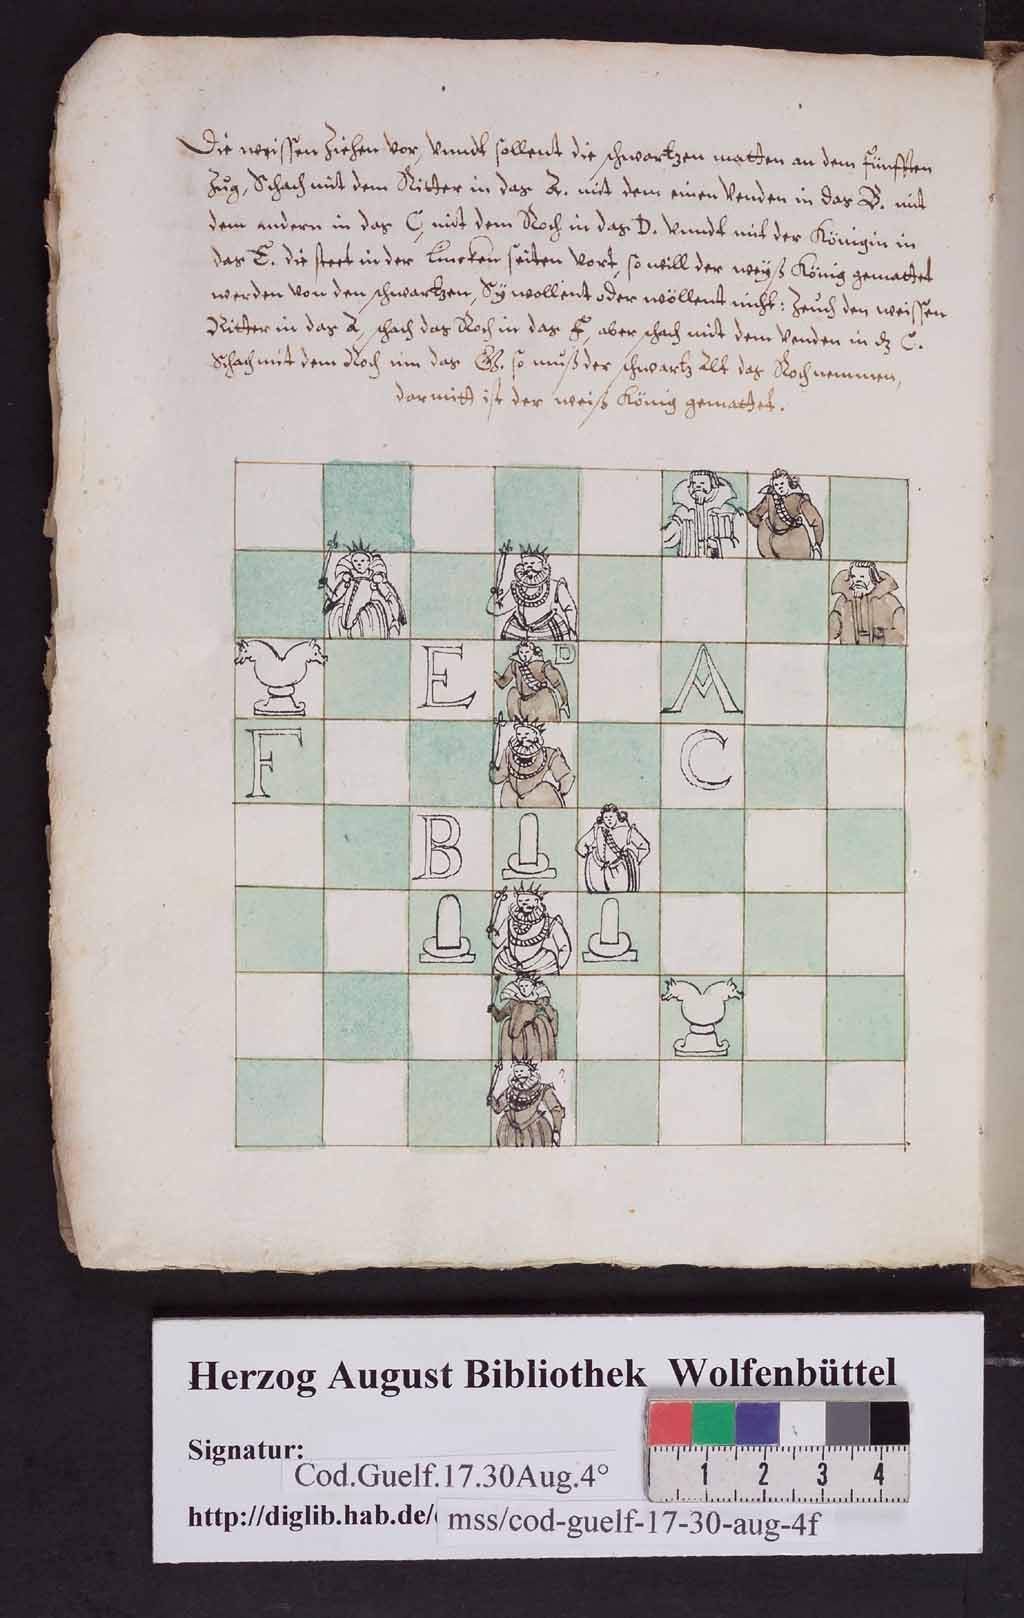 Die weissen Ziehen vor, vnndt sollent die schwartzen matten an dem fünfften
Zug, Schach mit dem Ritter in das A. mit dem einen Venden in das B. mit
dem andern in das C, mit dem Roch in das D. vnndt mit der Königin in
das E. die steet in der Lincken seiten Vort, so will der weyß König gemattet
werden von den schwartzen, Sÿ wollent oder wöllent nicht: Zeuch den weissen
Ritter in das A, schach das Roch in das F, aber schach mit dem Venden in dz C.
Schach mit dem Roch inn das G. so muß der schwartz Alt das Roch nemmen,
darmitt ist der weiß König gemattet.
D
E A
F C
B
?
Herzog August Bibliothek Wolfenbüttel
Signatur:
Cod.Guelf.17.30Aug.4°
1 2 3 4
http://diglib.hab.de/ mss/cod-guelf-17-30-aug-4f